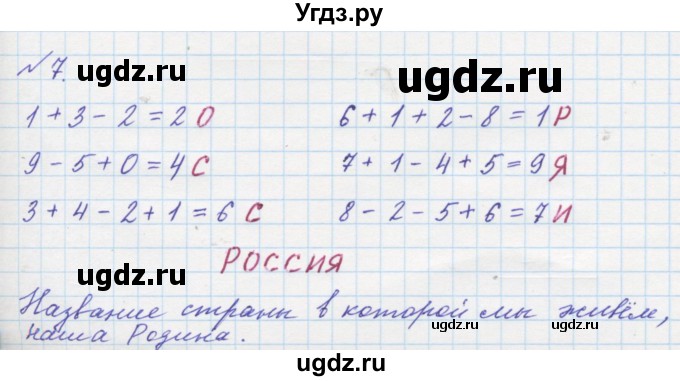 Угдз.ру
№7. ugdz.ru ugdz.ru
1+3-2=2 О 6+1+2-8=1 Р
9-5+0=4 С 7+1-4+5=9 Я
3+4-2+1=6 С 8-2-5+6=7 И
РОССИЯ
ugdz.ru
Название страны в которой мы живём,
ugdz.ru ugdz.ru
наша Родина.
ugdz.ru